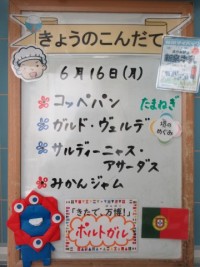 きょうのこんだて
6月16日(月)
コッペパン
たまねぎ
カルド・ヴェルデ
サルディーニャス・
アサーダス
みかんジャム
「きたで、万博！」
ポルトガル